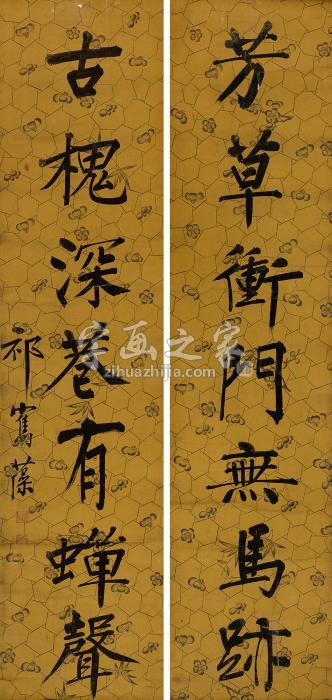 芳草衝門無馬跡
古槐深巷有蟬聲
祁寯藻
字画之家
www.zihuazhijia.com